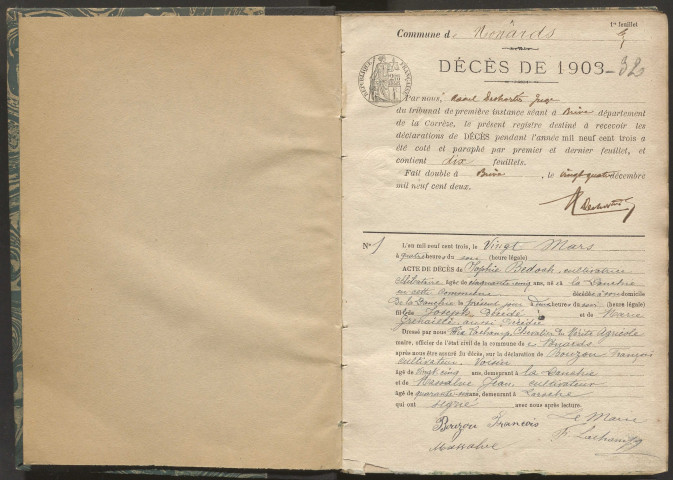 1er feuillet
Commune de Nonards
DÉCÈS DE 1903-32
RÉPUBLIQUE FRANÇAISE
Par nous, Raoul Deshortes Juge
du tribunal de première instance séant à Brive département
de la Corrèze, le présent registre destiné à recevoir les
déclarations de DÉCÈS pendant l'année mil neuf cent trois a
été coté et paraphé par premier et dernier feuillet, et
contient dix feuillets.
Fait double à Brive, le vingt quatre décembre
mil neuf cent deux.
R Deshortes
No 1 L'an mil neuf cent trois, le Vingt Mars
à quatre heures du soir (heure légale)
ACTE DE DÉCÈS de Sophie Bedoch, cultivatrice
célibataire âgée de cinquante cinq ans, né à
en cette commune décédée à son domicile
de le présent jour deux heures du soir (heure légale)
fille de Joseph Décédé et de Marie
aussi Décédée
Dressé par nous Chevalier du Mérite Agricole
maire, officier de l'état civil de la commune de Nonards
après nous être assuré du décès, sur la déclaration de Bouzou François
cultivateur Voisin
âgé de vingt cinq ans, demeurant à
et de Massalve Jean cultivateur
âgé de quarante ans, demeurant à
qui ont signé avec nous après lecture.
Bouzou François Le Maire
Massalve